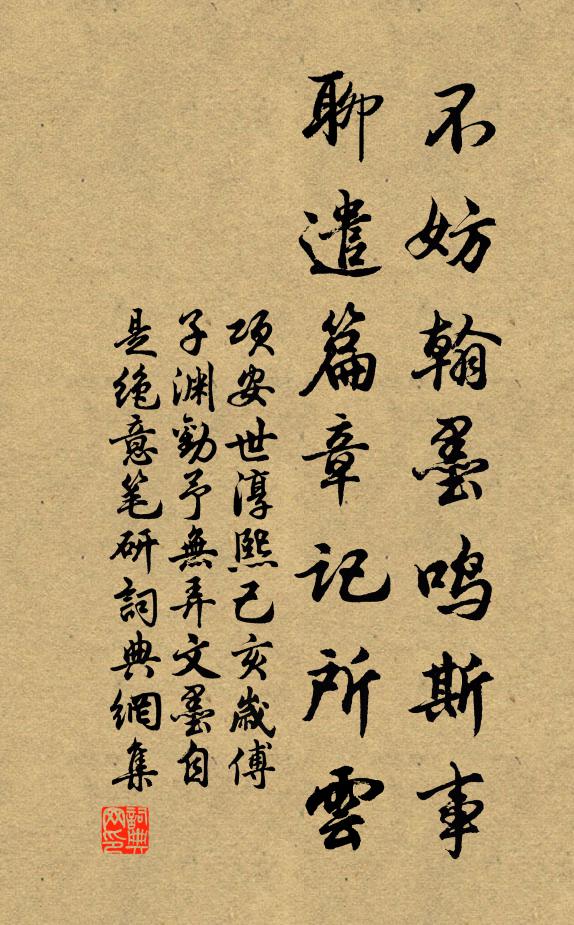 不妨翰墨鸣斯事
聊遣篇章記所雲
项安世淳熙己亥歲傅
子渊勸予無弄文墨自
是绝意笔研詞典網集
詞典网印